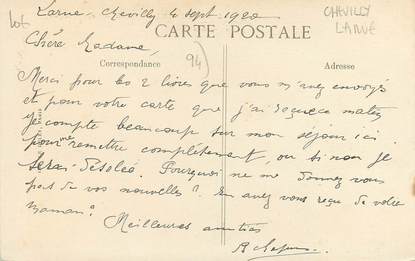 Larue, chevilly 4 Sept. 1920
CHEVILLY
LARUE
Lot
Chère Madame,
CARTE POSTALE
94)
Correspondance
Adresse
Merci pour les 2 livres que vous m'avez envoyés
et pour votre carte que j'ai reçue ce matin
Je compte beaucoup sur mon séjour ici
pour me remettre complètement, ou si non je
serai désolée. Pourquoi ne me donnez vous
pas de vos nouvelles? En avez vous reçu de votre
maman?
Meilleures amitiés